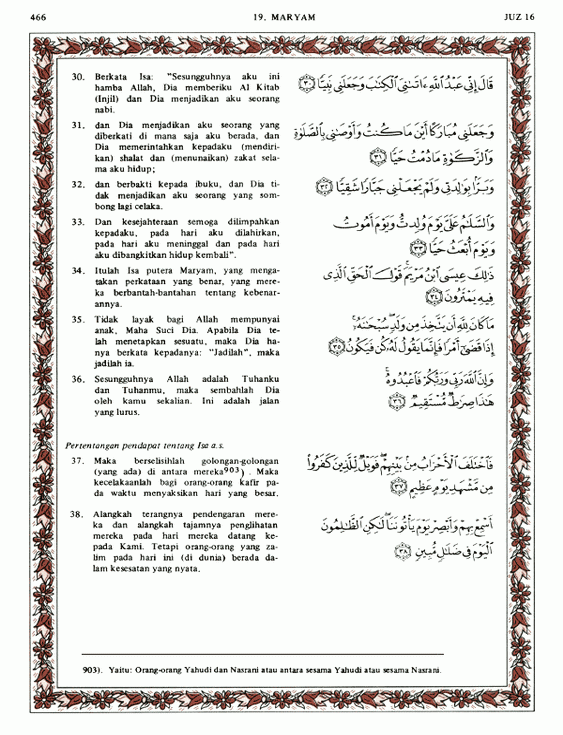 466
19. MARYAM
JUZ 16
30. Berkata Isa: "Sesungguhnya aku ini
hamba Allah, Dia memberiku Al Kitab
(Injil) dan Dia menjadikan aku seorang
nabi.
قَالَ إِنِّي عَبْدُ اللَّهِ ءَاتَىٰنِيَ ٱلْكِتَٰبَ وَجَعَلَنِي نَبِيًّا ﴿٣٠﴾
31. dan Dia menjadikan aku seorang yang
diberkati di mana saja aku berada, dan
Dia memerintahkan kepadaku (mendiri-
kan) shalat dan (menunaikan) zakat sela-
ma aku hidup;
وَجَعَلَنِي مُبَارَكًا أَيْنَ مَا كُنتُ وَأَوْصَٰنِي بِٱلصَّلَوٰةِ
وَٱلزَّكَوٰةِ مَا دُمْتُ حَيًّا ﴿٣١﴾
32. dan berbakti kepada ibuku, dan Dia ti-
dak menjadikan aku seorang yang som-
bong lagi celaka.
وَبَرًّۢا بِوَٰلِدَتِي وَلَمْ يَجْعَلْنِي جَبَّارًا شَقِيًّا ﴿٣٢﴾
33. Dan kesejahteraan semoga dilimpahkan
kepadaku, pada hari aku dilahirkan,
pada hari aku meninggal dan pada hari
aku dibangkitkan hidup kembali".
وَٱلسَّلَٰمُ عَلَيَّ يَوْمَ وُلِدتُّ وَيَوْمَ أَمُوتُ
وَيَوْمَ أُبْعَثُ حَيًّا ﴿٣٣﴾
34. Itulah Isa putera Maryam, yang menga-
takan perkataan yang benar, yang mere-
ka berbantah-bantahan tentang kebenar-
annya.
ذَٰلِكَ عِيسَى ٱبْنُ مَرْيَمَ قَوْلَ ٱلْحَقِّ ٱلَّذِي
فِيهِ يَمْتَرُونَ ﴿٣٤﴾
35. Tidak layak bagi Allah mempunyai
anak, Maha Suci Dia. Apabila Dia te-
lah menetapkan sesuatu, maka Dia ha-
nya berkata kepadanya: "Jadilah", maka
jadilah ia.
مَا كَانَ لِلَّهِ أَن يَتَّخِذَ مِن وَلَدٍ سُبْحَٰنَهُۥٓ
إِذَا قَضَىٰٓ أَمْرًا فَإِنَّمَا يَقُولُ لَهُۥ كُن فَيَكُونُ ﴿٣٥﴾
36. Sesungguhnya Allah adalah Tuhanku
dan Tuhanmu, maka sembahlah Dia
oleh kamu sekalian. Ini adalah jalan
yang lurus.
وَإِنَّ ٱللَّهَ رَبِّي وَرَبُّكُمْ فَٱعْبُدُوهُ
هَٰذَا صِرَٰطٌ مُّسْتَقِيمٌ ﴿٣٦﴾
Pertentangan pendapat tentang Isa a.s.
37. Maka berselisihlah golongan-golongan
(yang ada) di antara mereka903) . Maka
kecelakaanlah bagi orang-orang kafir pa-
da waktu menyaksikan hari yang besar.
فَٱخْتَلَفَ ٱلْأَحْزَابُ مِنۢ بَيْنِهِمْ فَوَيْلٌ لِّلَّذِينَ كَفَرُوا۟
مِن مَّشْهَدِ يَوْمٍ عَظِيمٍ ﴿٣٧﴾
38. Alangkah terangnya pendengaran mere-
ka dan alangkah tajamnya penglihatan
mereka pada hari mereka datang ke-
pada Kami. Tetapi orang-orang yang za-
lim pada hari ini (di dunia) berada da-
lam kesesatan yang nyata.
أَسْمِعْ بِهِمْ وَأَبْصِرْ يَوْمَ يَأْتُونَنَا لَٰكِنِ ٱلظَّٰلِمُونَ
ٱلْيَوْمَ فِي ضَلَٰلٍ مُّبِينٍ ﴿٣٨﴾
903). Yaitu: Orang-orang Yahudi dan Nasrani atau antara sesama Yahudi atau sesama Nasrani.